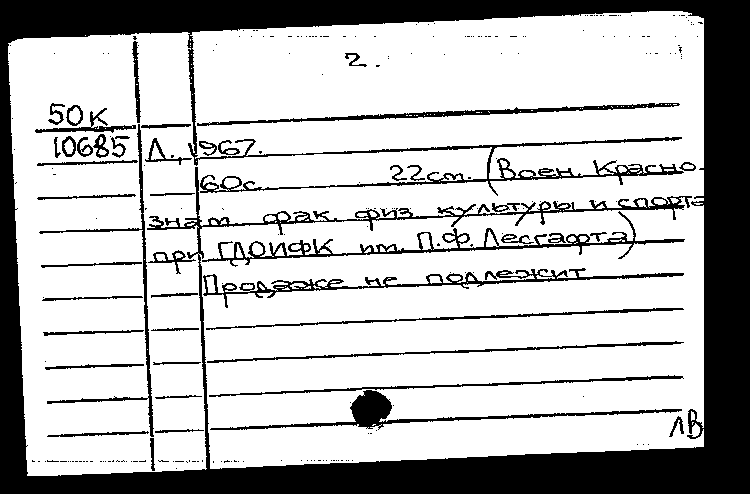 2.
50к
10685 Л., 1967.
60с. 22см. (Воен. Красно-
знам. фак. физ. культуры и спорта
при ГДОИФК им. П.Ф. Лесгафта)
Продаже не подлежит
ЛВ